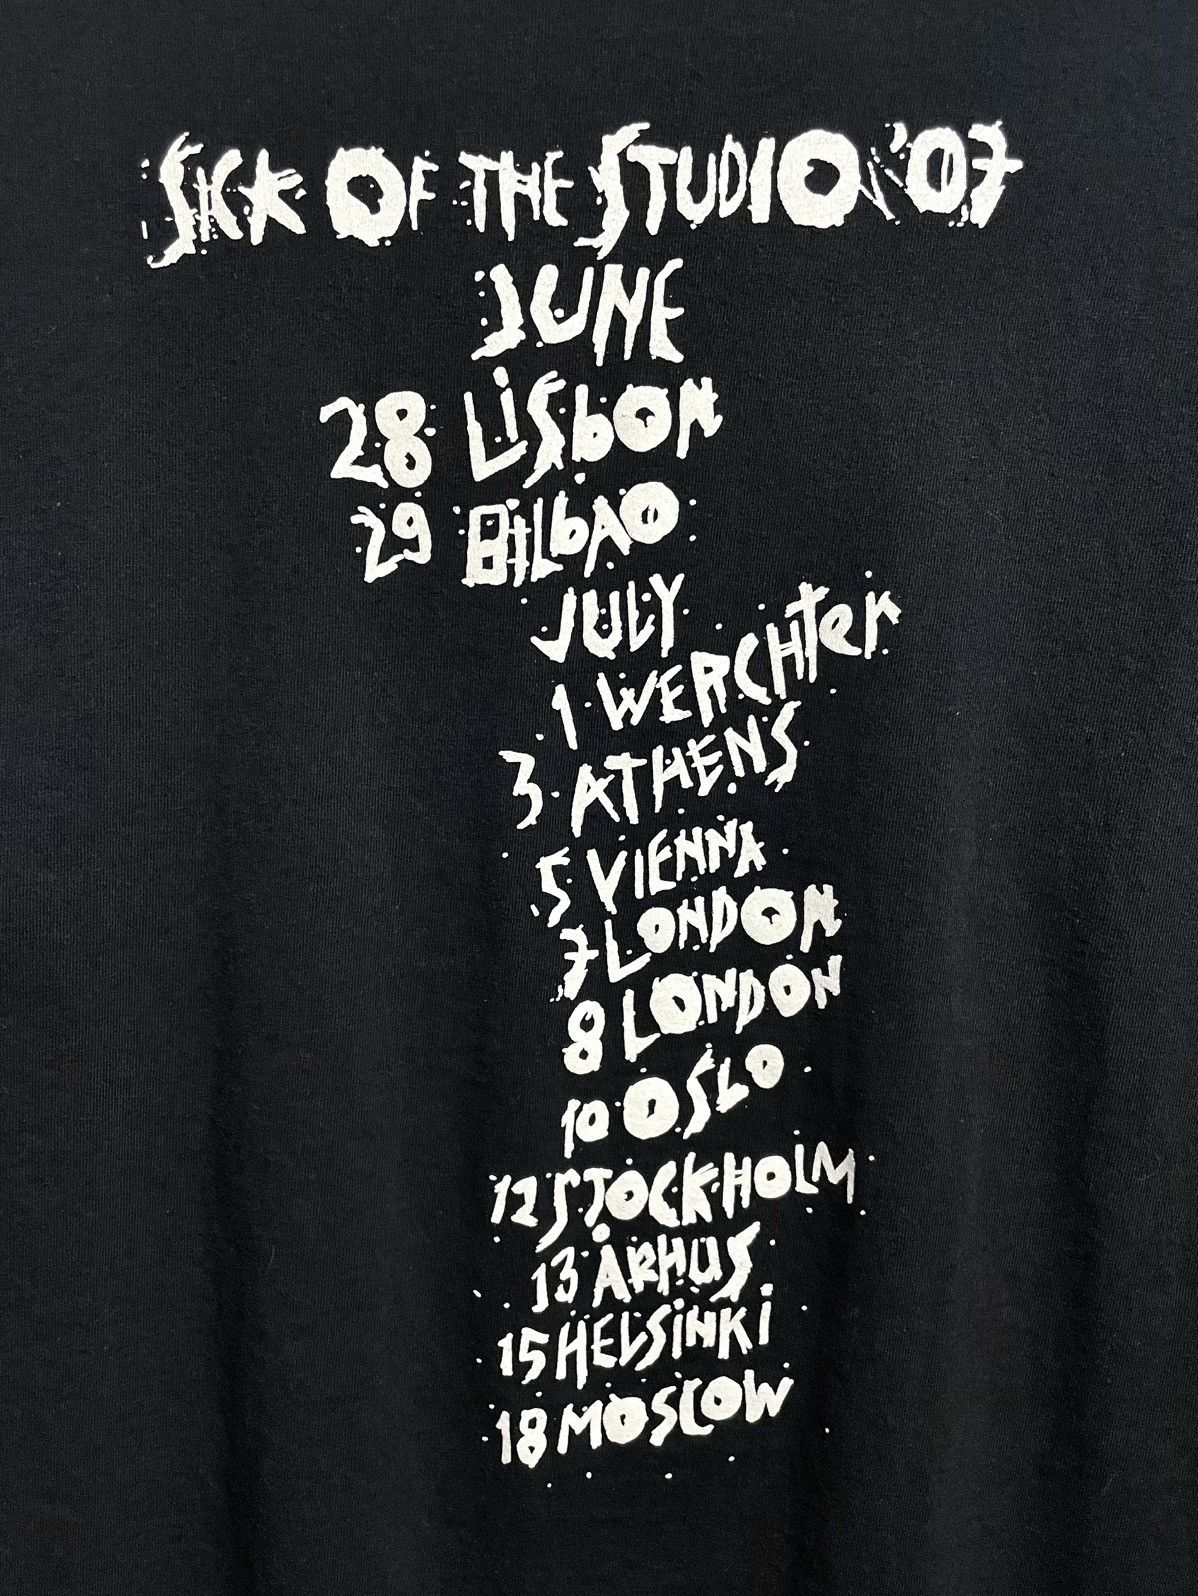 SICK OF THE STUDIO '07
JUNE
28 LiSbON
29 BiLbAO
JULY
1 WERCHTer
3 ATHENS
5 VIENNA
7 LONDON
8 LONDON
10 OSLO
12 STOCKHOLM
13 ÅRHUS
15 HELSiNKi
18 MOSCOW